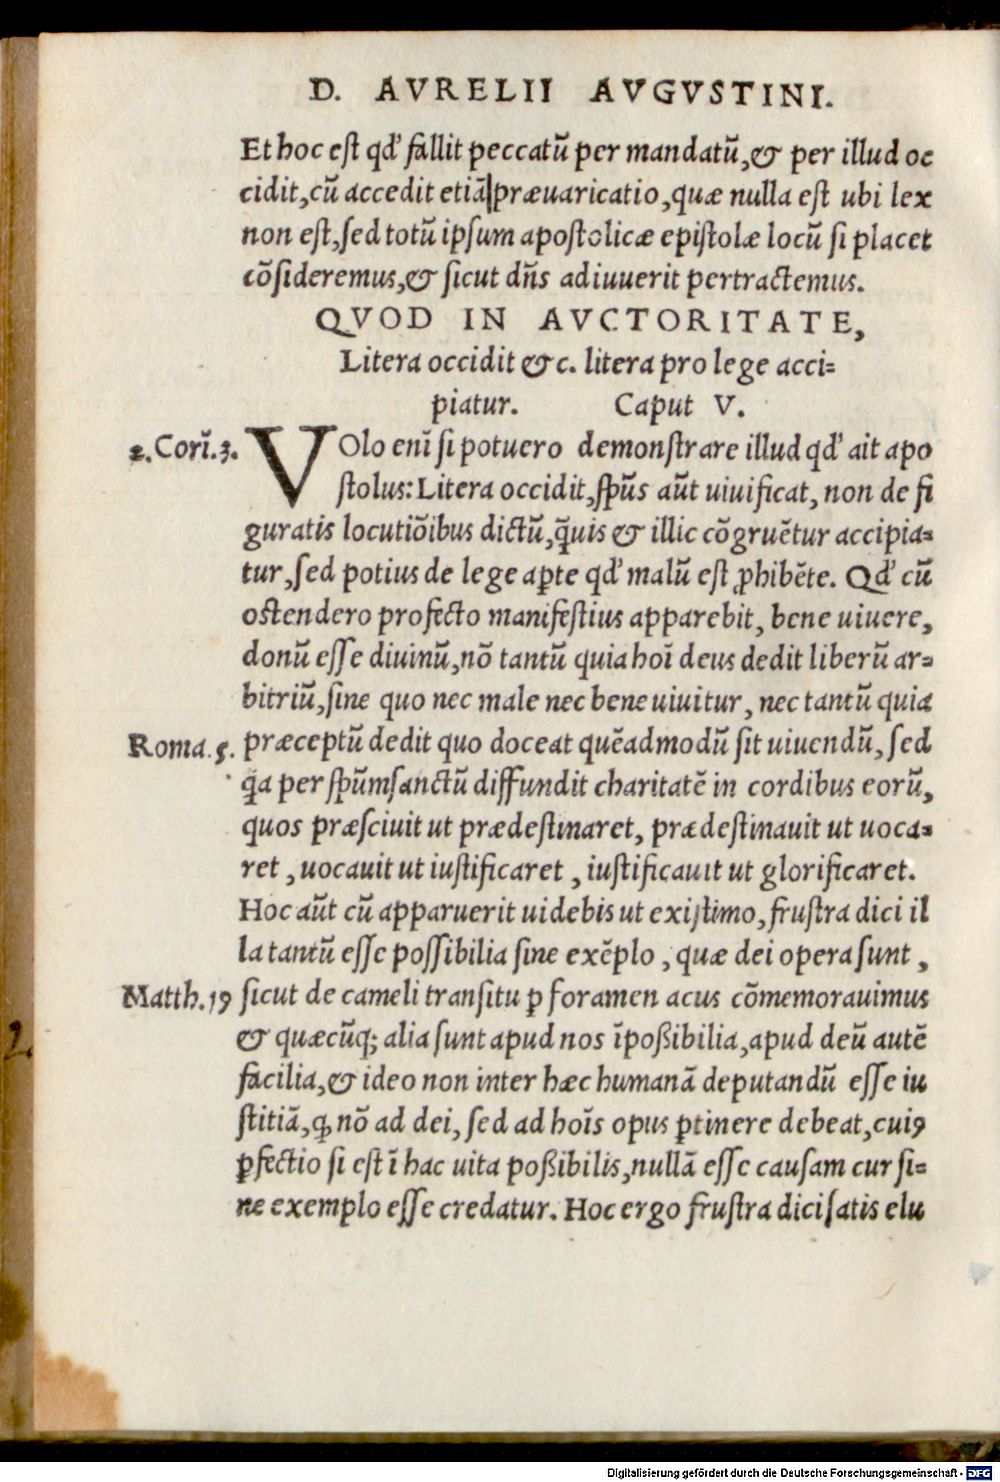 D. AVRELII AVGVSTINI.
Et hoc est qď fallit peccatũ per mandatũ,& per illud oc
cidit,cũ accedit etiã|præuaricatio,quæ nulla est ubi lex
non est,sed totũ ipsum apostolicæ epistolæ locũ si placet
cõsideremus,& sicut dñs adiuuerit pertractemus.
QVOD IN AVCTORITATE,
Litera occidit &c. litera pro lege acci=
piatur. Caput V.
2.Corĩ.3. VOlo enĩ si potuero demonstrare illud qď ait apo
stolus: Litera occidit,sp̃us aũt uiuificat, non de fi
guratis locutiõibus dictũ,q̃uis & illic cõgruẽtur accipia=
tur, sed potius de lege aꝑte qď malũ est ꝓhibẽte. Qď cũ
ostendero profecto manifestius apparebit, bene uiuere,
donũ esse diuinũ,nõ tantũ quia hoĩ deus dedit liberũ ar=
bitriũ,sine quo nec male nec bene uiuitur, nec tantũ quia
Roma.5. præceptũ dedit quo doceat quẽadmodũ sit uiuendũ, sed
q̃a per sp̃umsanctũ diffundit charitatẽ in cordibus eorũ,
quos præsciuit ut prædestinaret, prædestinauit ut uoca=
ret, uocauit ut iustificaret, iustificauit ut glorificaret.
Hoc aũt cũ apparuerit uidebis ut existimo, frustra dici il
la tantũ esse possibilia sine exẽplo, quæ dei opera sunt,
Matth.19 sicut de cameli transitu ꝑ foramen acus cõmemorauimus
& quæcũq; alia sunt apud nos ĩpoßibilia,apud deũ autẽ
facilia,& ideo non inter hæc humanã deputandũ esse iu
stitiã,ꝙ nõ ad dei, sed ad hoĩs opus ꝑtinere debeat,cuiꝰ
ꝑfectio si est ĩ hac uita poßibilis,nullã esse causam cur si=
ne exemplo esse credatur. Hoc ergo frustra dici satis elu
Digitalisierung gefördert durch die Deutsche Forschungsgemeinschaft - DFG